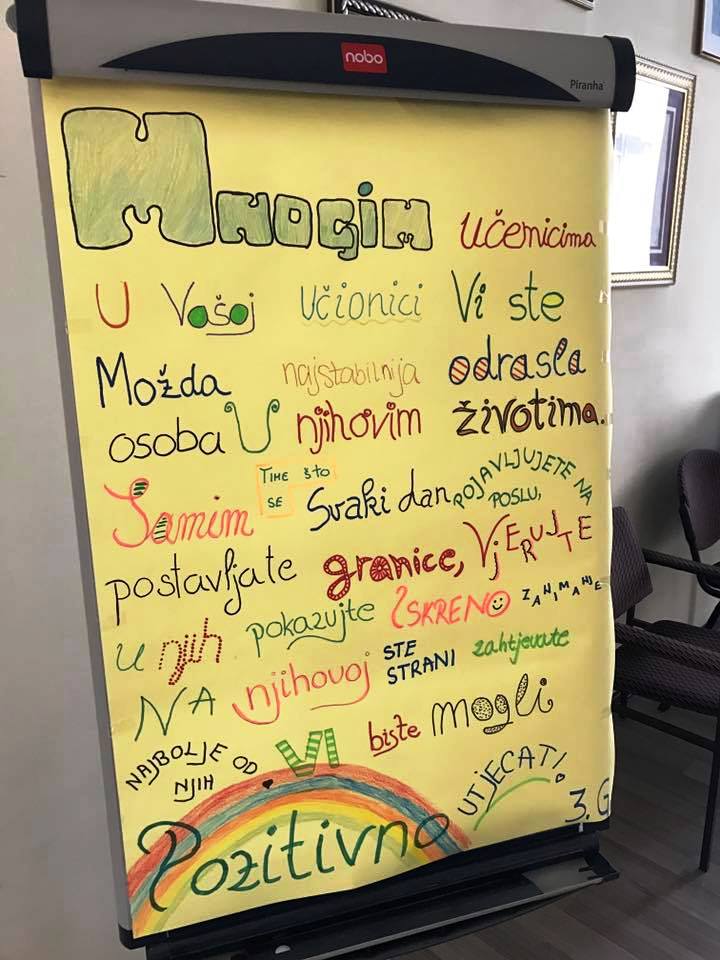 nobo
Piranha
Mnogim učenicima
U Vašoj učionici Vi ste
Možda najstabilnija odrasla
osoba U njihovim životima.
Samim TIME što SE Svaki dan POJAVLJUJETE NA POSLU,
postavljate granice, VjERUJTE
U njih pokazujte ISKRENO ZANIMANJE
NA njihovoj STE STRANI zahtjevate
NAJBOLJE OD NJIH VI biste mogli
Pozitivno UTJECAT!
3. G